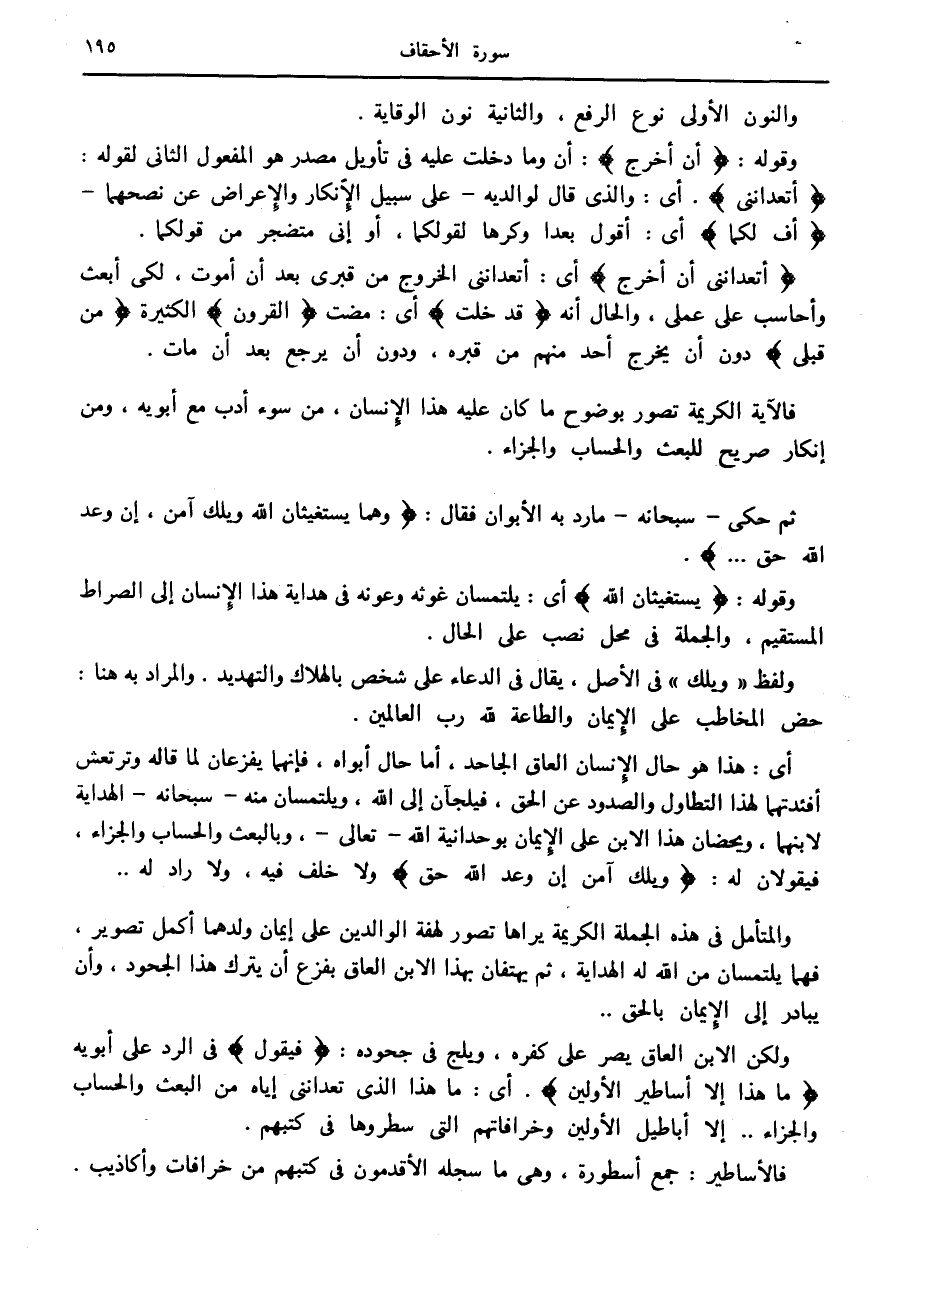 سورة الأحقاف ١٩٥
والنون الأولى نوع الرفع ، والثانية نون الوقاية .
وقوله : ﴿ أن أخرج ﴾ : أن وما دخلت عليه فى تأويل مصدر هو المفعول الثانى لقوله :
﴿ أتعداننى ﴾ . أى : والذى قال لوالديه – على سبيل الإنكار والإعراض عن نصحهما –
﴿ أف لكما ﴾ أى : أقول بعدا وكرها لقولكما ، أو إنى متضجر من قولكما .
﴿ أتعداننى أن أخرج ﴾ أى : أتعداننى الخروج من قبرى بعد أن أموت ، لكى أبعث
وأحاسب على عملى ، والحال أنه ﴿ قد خلت ﴾ أى : مضت ﴿ القرون ﴾ الكثيرة ﴿ من
قبلى ﴾ دون أن يخرج أحد منهم من قبره ، ودون أن يرجع بعد أن مات .
فالآية الكريمة تصور بوضوح ما كان عليه هذا الإنسان ، من سوء أدب مع أبويه ، ومن
إنكار صريح للبعث والحساب والجزاء .
ثم حكى – سبحانه – مارد به الأبوان فقال : ﴿ وهما يستغيثان الله ويلك آمن ، إن وعد
الله حق ... ﴾ .
وقوله : ﴿ يستغيثان الله ﴾ أى : يلتمسان غوثه وعونه فى هداية هذا الإنسان إلى الصراط
المستقيم ، والجملة فى محل نصب على الحال .
ولفظ « ويلك » فى الأصل ، يقال فى الدعاء على شخص بالهلاك والتهديد . والمراد به هنا :
حض المخاطب على الإيمان والطاعة لله رب العالمين .
أى : هذا هو حال الإنسان العاق الجاحد ، أما حال أبواه ، فإنهما يفزعان لما قاله وترتعش
أفئدتهما لهذا التطاول والصدود عن الحق ، فيلجآن إلى الله ، ويلتمسان منه – سبحانه – الهداية
لابنهما ، ويحضان هذا الابن على الإيمان بوحدانية الله – تعالى – ، وبالبعث والحساب والجزاء ،
فيقولان له : ﴿ ويلك آمن إن وعد الله حق ﴾ ولا خلف فيه ، ولا راد له ..
والمتأمل فى هذه الجملة الكريمة يراها تصور لهفة الوالدين على إيمان ولدهما أكمل تصوير ،
فهما يلتمسان من الله له الهداية ، ثم يهتفان بهذا الابن العاق بفزع أن يترك هذا الجحود ، وأن
يبادر إلى الإيمان بالحق ..
ولكن الابن العاق يصر على كفره ، ويلج فى جحوده : ﴿ فيقول ﴾ فى الرد على أبويه
﴿ ما هذا إلا أساطير الأولين ﴾ . أى : ما هذا الذى تعداننى إياه من البعث والحساب
والجزاء .. إلا أباطيل الأولين وخرافاتهم التى سطروها فى كتبهم .
فالأساطير : جمع أسطورة ، وهى ما سجله الأقدمون فى كتبهم من خرافات وأكاذيب .